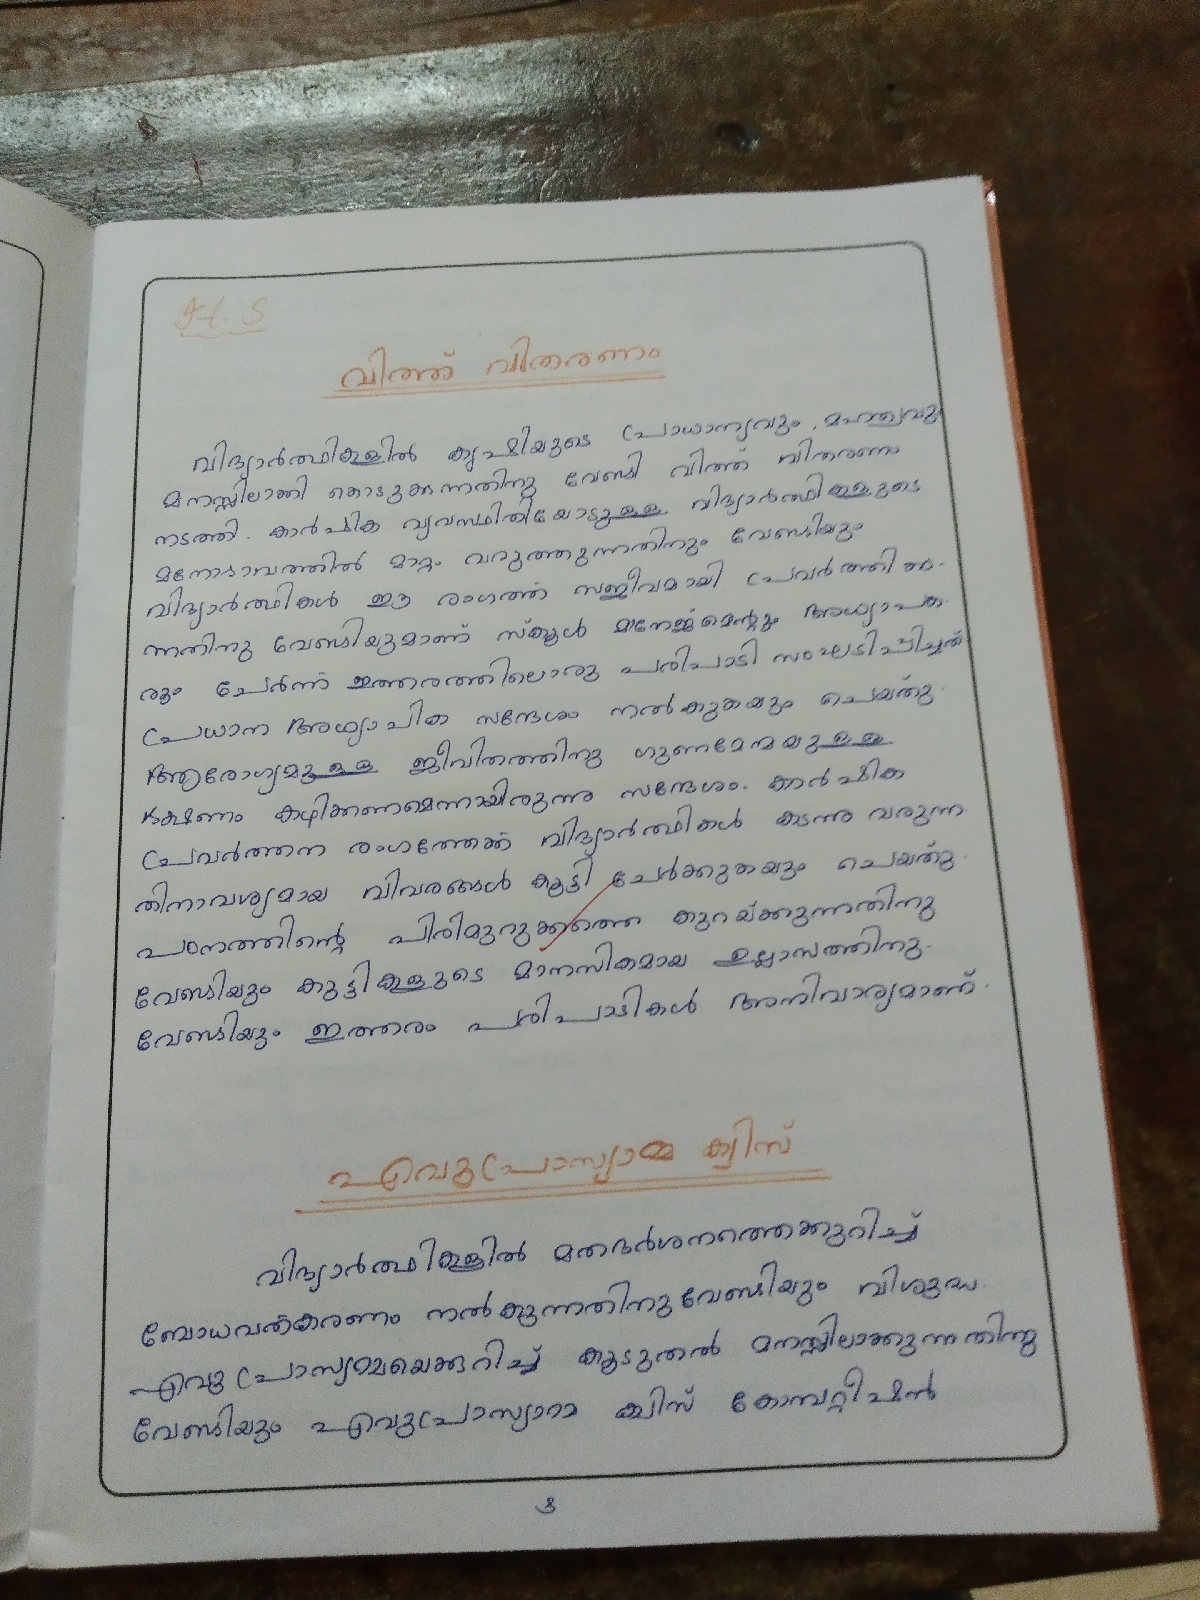 H.S
വിത്ത് വിതരണം
വിദ്യാർത്ഥികളിൽ കൃഷിയുടെ പ്രാധാന്യവും, മഹത്വവും
മനസ്സിലാക്കി കൊടുക്കുന്നതിനു വേണ്ടി വിത്ത് വിതരണം
നടത്തി. കാർഷിക വ്യവസ്ഥിതിയോടുള്ള വിദ്യാർത്ഥികളുടെ
മനോഭാവത്തിൽ മാറ്റം വറുത്തുന്നതിനും വേണ്ടിയും
വിദ്യാർത്ഥികൾ ഈ രംഗത്ത് സജീവമായി പ്രവർത്തിക്കു-
ന്നതിനു വേണ്ടിയുമാണ് സ്കൂൾ മാനേജ്മെന്റും അധ്യാപക
രും ചേർന്ന് ഇത്തരത്തിലൊരു പരിപാടി സംഘടിപ്പിച്ചത്
പ്രധാന അധ്യാപിക സന്ദേശം നൽകുകയും ചെയ്തു.
ആരോഗ്യമുള്ള ജീവിതത്തിനു ഗുണമേന്മയുള്ള
ഭക്ഷണം കഴിക്കണമെന്നായിരുന്നു സന്ദേശം. കാർഷിക
പ്രവർത്തന രംഗത്തേക്ക് വിദ്യാർത്ഥികൾ കടന്നു വരുന്ന
തിനാവശ്യമായ വിവരങ്ങൾ കൂട്ടി ചേർക്കുകയും ചെയ്തു.
പഠനത്തിന്റെ പിരിമുറുക്കത്തെ കുറയ്ക്കുന്നതിനു
വേണ്ടിയും കുട്ടികളുടെ മാനസികമായ ഉല്ലാസത്തിനു
വേണ്ടിയും ഇത്തരം പരിപാടികൾ അനിവാര്യമാണ്.
ഏവുപ്രാസ്യാമ്മ ക്വിസ്
വിദ്യാർത്ഥികളിൽ മതദർശനത്തെക്കുറിച്ച്
ബോധവത്കരണം നൽകുന്നതിനുവേണ്ടിയും വിശുദ്ധ
ഏവുപ്രാസ്യമ്മയെക്കുറിച്ച് കൂടുതൽ മനസ്സിലാക്കുന്നതിനു
വേണ്ടിയും ഏവുപ്രാസ്യാമ്മ ക്വിസ് കോമ്പറ്റീഷൻ
3